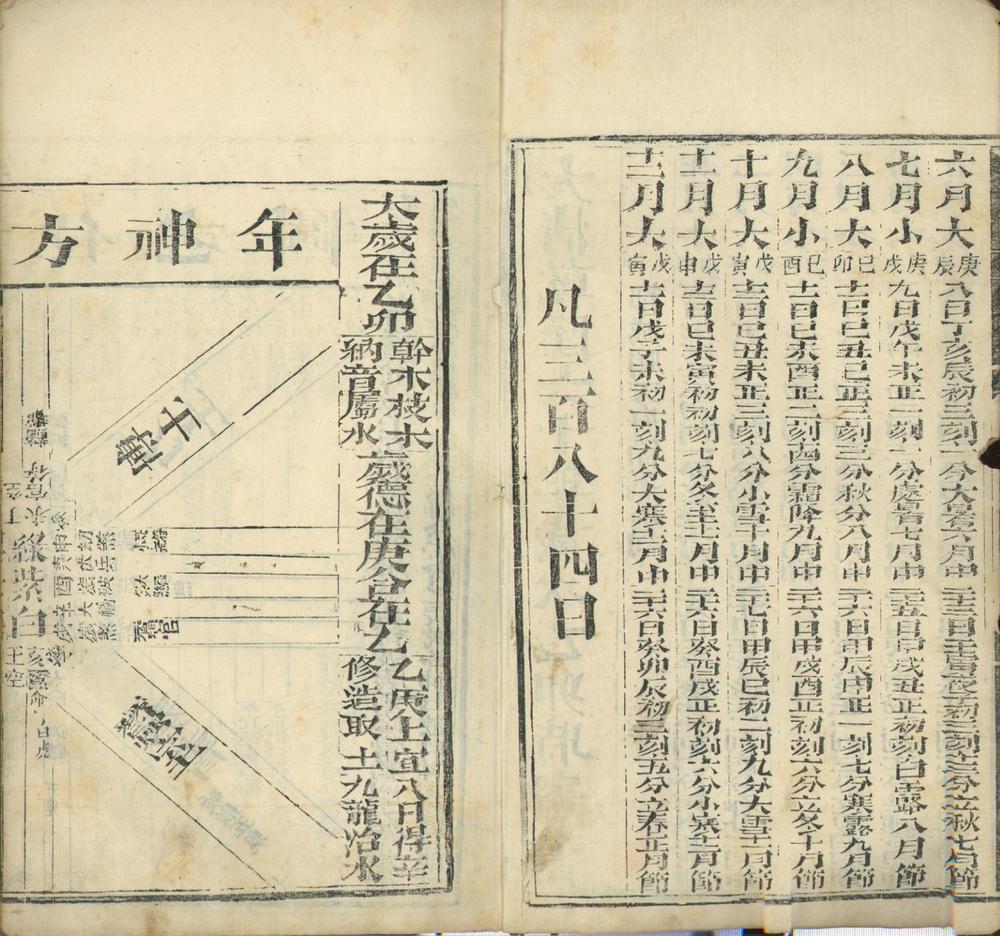 六月大庚辰八日丁亥辰初三刻一分大暑六月中二十三日壬寅夜子初三刻十三分立秋七月節
七月小庚戌九日戊午未正二刻一分處暑七月中二十五日甲戌丑正初刻白露八月節
八月大己卯十一日己丑巳正三刻三分秋分八月中二十六日甲辰申正一刻七分寒露九月節
九月小己酉十一日己未酉正二刻四分霜降九月中二十六日甲戌酉正初刻六分立冬十月節
十月大戊寅十二日己丑未正三刻八分小雪十月中二十七日甲辰巳初二刻九分大雪十一月節
十一月大戊申十二日己未寅初初刻七分冬至十一月中二十六日癸酉戌正初刻六分小寒十二月節
十二月大戊寅十一日戊子未初一刻九分大寒十二月中二十六日癸卯辰初三刻五分立春正月節
凡三百八十四日
太歲在乙卯
幹木枝木
納音屬水
歲德在庚合在乙
乙庚上宜
修造取土
八日得辛
九龍治水
年神方
博士
蠶室
綠
紫
白